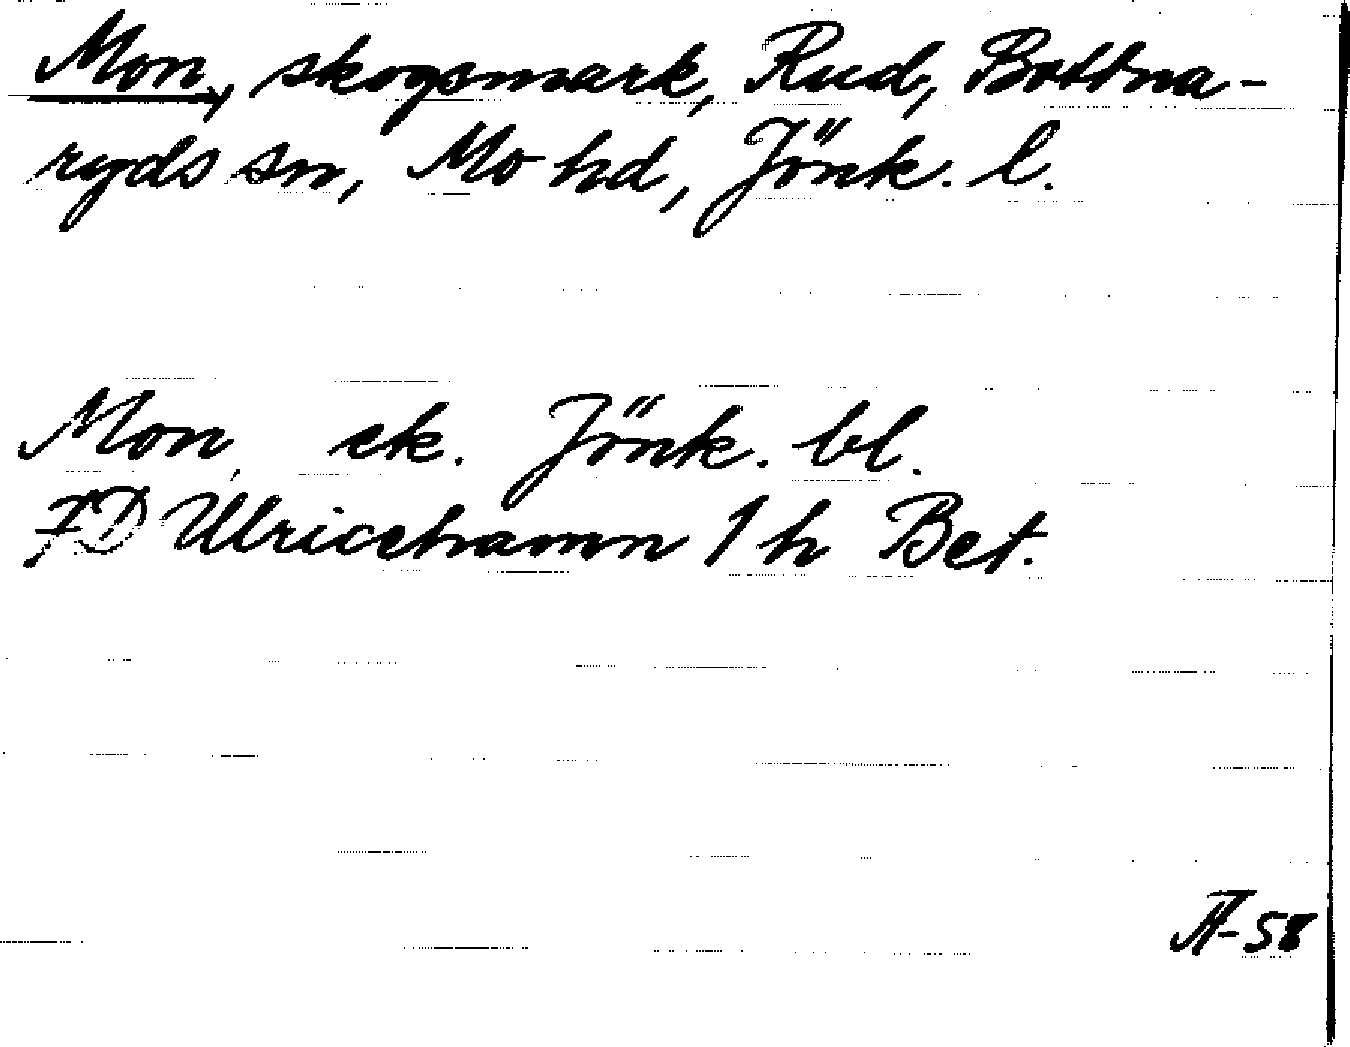 Mon, skogsmark, Rud, Bottna-
ryds sn, Mo hd, Jönk. l.
Mon, ek. Jönk. bl.
7D Ulricehamn 1 h Bet.
-58